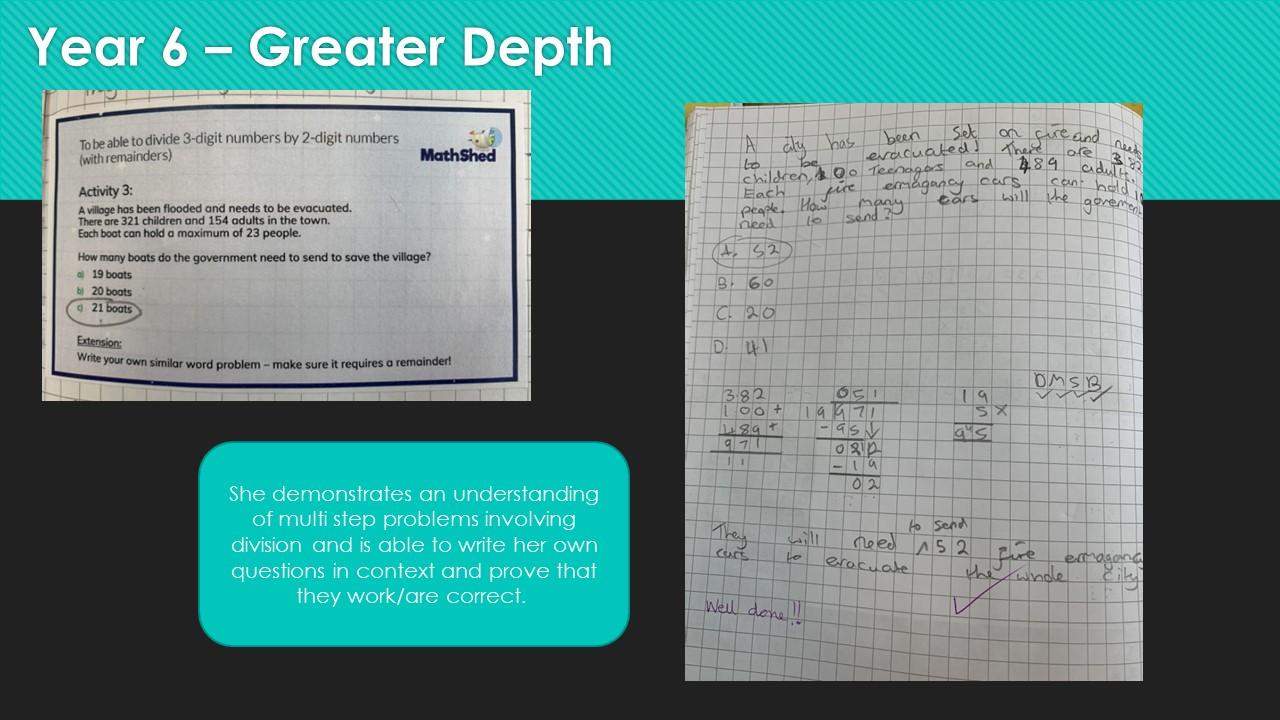 Year 6 – Greater Depth
To be able to divide 3-digit numbers by 2-digit numbers
(with remainders)
MathShed
Activity 3:
A village has been flooded and needs to be evacuated.
There are 321 children and 154 adults in the town.
Each boat can hold a maximum of 23 people.
How many boats do the government need to send to save the village?
a) 19 boats
b) 20 boats
c) 21 boats
Extension:
Write your own similar word problem – make sure it requires a remainder!
She demonstrates an understanding
of multi step problems involving
division and is able to write her own
questions in context and prove that
they work/are correct.
A city has been set on fire and needs
to be evacuated! There are 382
children, 100 Teenagers and 489 adults.
Each fire emagancy cars can hold 19
people. How many cars will the goverment
need to send?
A. 52
B. 60
C. 20
D. 41
DMSB
382
100+
489+
971
11
051
19 971
-95↓
02
-19
02
19
5×
95
to send
They will need ^52 fire ermagancy
cars to evacuate the whole city
Well done!!